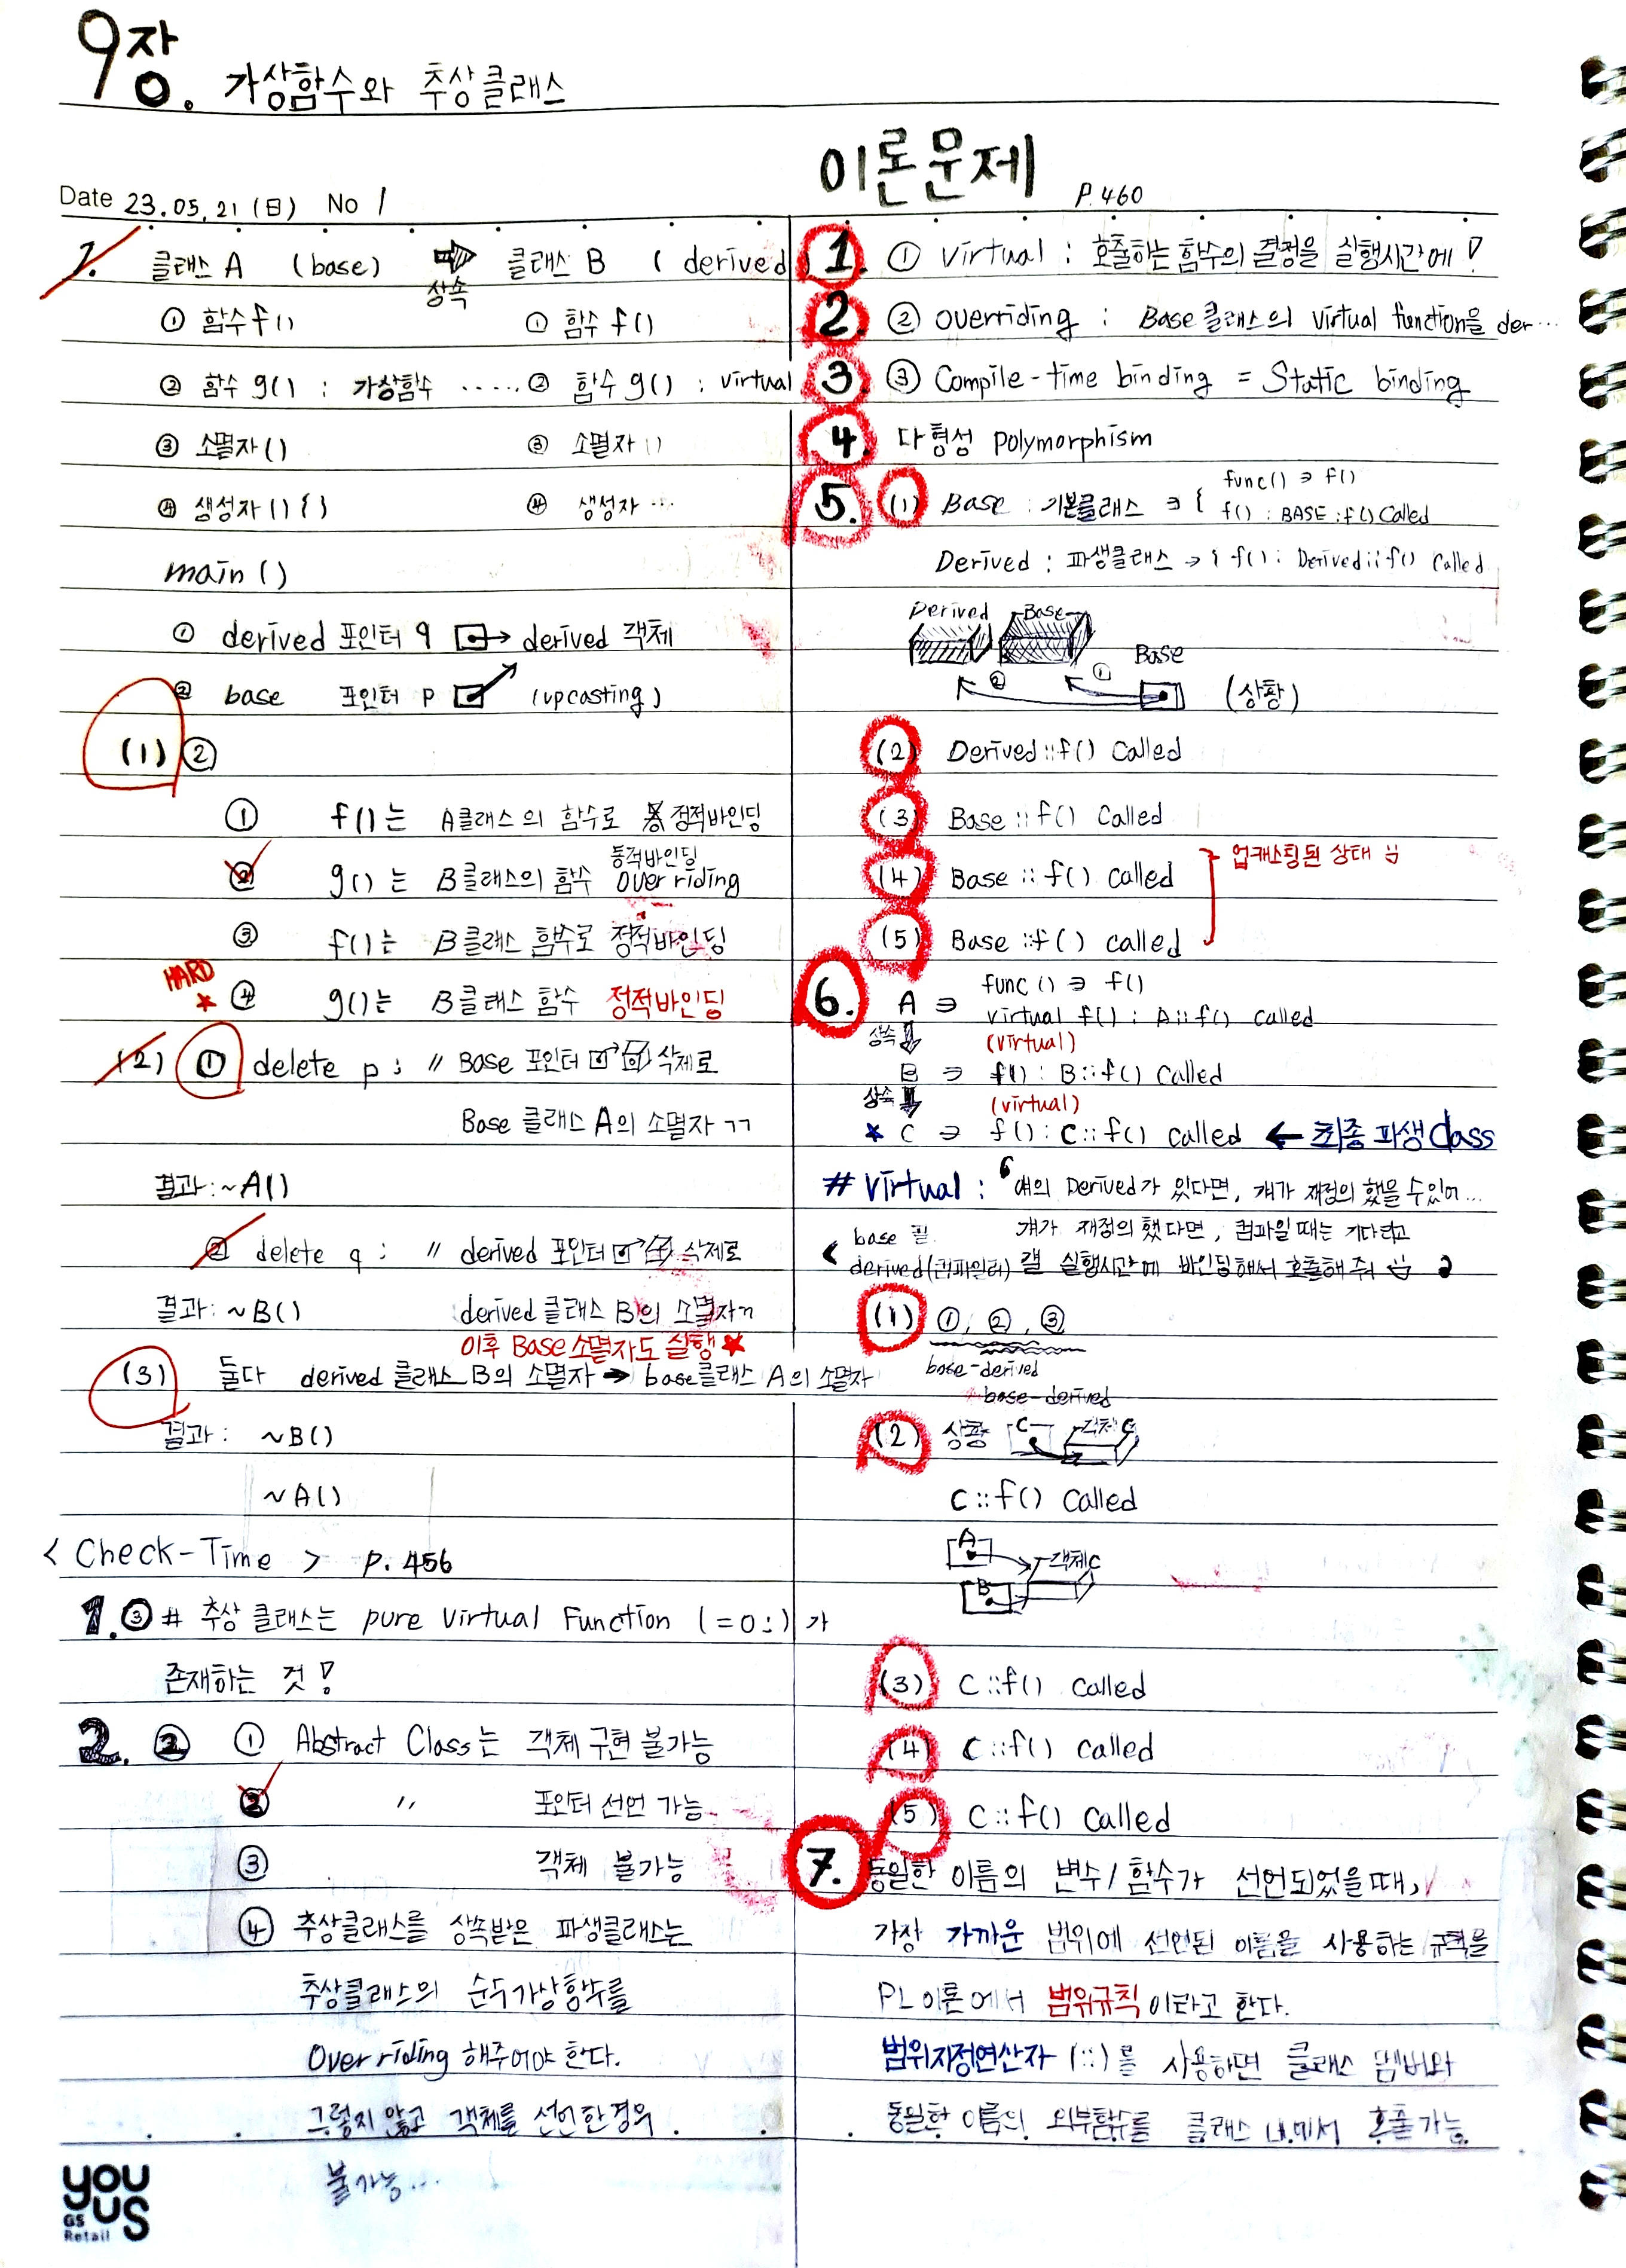 9장. 가상함수와 추상클래스
Date 23.05.21(日) No 1
1. 클래스 A (base) 상속 클래스 B (derived)
① 함수 f() ① 함수 f()
② 함수 g() : 가상함수 ..... ② 함수 g() : virtual
③ 소멸자() ③ 소멸자()
④ 생성자(){} ④ 생성자 ...
main()
① derived 포인터 q → derived 객체
② base 포인터 p (upcasting)
(1) ②
① f()는 A클래스의 함수로 정적바인딩
② g()는 B클래스의 함수 동적바인딩 overriding
③ f()는 B클래스 함수로 정적바인딩
HARD ★ ④ g()는 B클래스 함수 정적바인딩
(2) ① delete p; // Base 포인터 → 삭제로
Base 클래스 A의 소멸자 ㄱㄱ
결과: ~A()
② delete q; // derived 포인터 → 삭제로
결과: ~B() derived 클래스 B의 소멸자ㄲ
이후 Base 소멸자도 실행 ★
(3) 둘다 derived 클래스 B의 소멸자 → base클래스 A의 소멸자
결과: ~B()
~A()
< Check-Time > P.456
1. ③ # 추상클래스는 pure virtual Function (=0;)가
존재하는 것!
2. ② ① Abstract Class는 객체 구현 불가능
② 〃 포인터 선언 가능
③ 객체 불가능
④ 추상클래스를 상속받은 파생클래스는
추상클래스의 순수가상함수를
Overriding 해주어야 한다.
그렇지 않고 객체를 선언한경우
불가능...
you us
GS Retail
이론문제 P.460
1. ① virtual : 호출하는 함수의 결정을 실행시간에!
2. ② overriding : Base 클래스의 virtual function을 der...
3. ③ Compile-time binding = Static binding
4. 다형성 polymorphism
5. (1) Base : 기본클래스 ∋ { func() ∋ f()
f() : BASE::f() Called
Derived : 파생클래스 → { f() : Derived::f() Called
Derived Base
② ① Base
(상황)
(2) Derived::f() Called
(3) Base::f() Called
(4) Base::f() called
업캐스팅된 상태
(5) Base::f() called
6. A ∋ func() ∋ f()
virtual f() : A::f() called
상속 (virtual)
B ∋ f() : B::f() Called
상속 (virtual)
★ C ∋ f() : C::f() called ← 최종 파생 Class
# virtual : 얘의 Derived가 있다면, 걔가 재정의 했을 수있어...
base 걔가 재정의 했다면, 컴파일때는 기다리고
derived(컴파일러) 걜 실행시간에 바인딩해서 호출해 줘
(1) ①, ②, ③
base-derived
base-derived
(2) 상황 C 객체 C
C::f() Called
A
객체C
B
(3) C::f() called
(4) C::f() called
(5) C::f() Called
7. 동일한 이름의 변수/함수가 선언되었을때,
가장 가까운 범위에 선언된 이름을 사용하는 규칙을
PL이론에서 범위규칙이라고 한다.
범위지정연산자(::)를 사용하면 클래스 멤버와
동일한 이름의 외부함수를 클래스 내에서 호출가능.